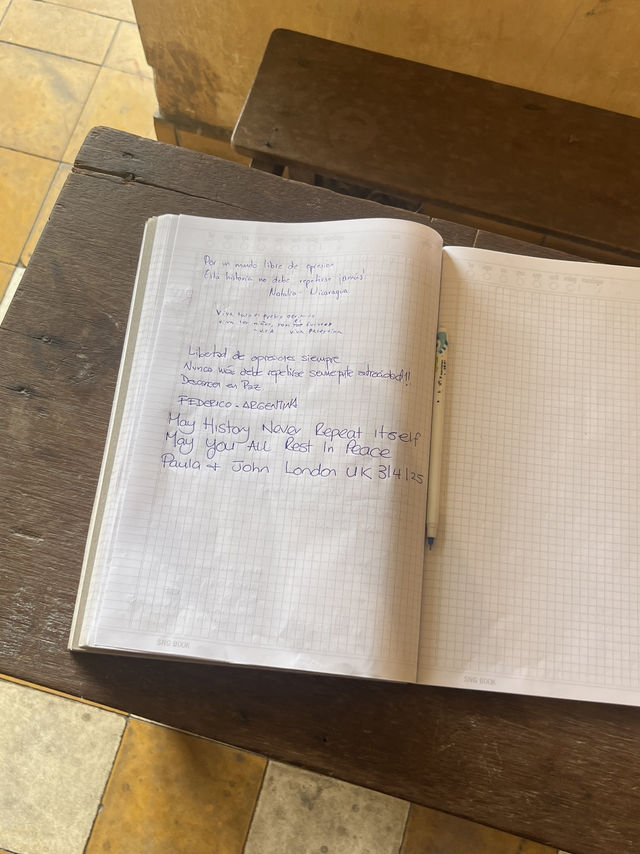 Por un mundo libre de opresion
Esta historia no debe repetirse jamás!
Natalia - Nicaragua
Viva
viva los niños, son
- USA viva Palestina
Libertad de opresores siempre
Nunca más debe repetirse semejante atrocidad!!!
Descansen en Paz
FEDERICO - ARGENTINA
May History Never Repeat itself
May you All Rest In Peace
Paula + John London UK 3/4/25
SNG BOOK
SNG BOOK